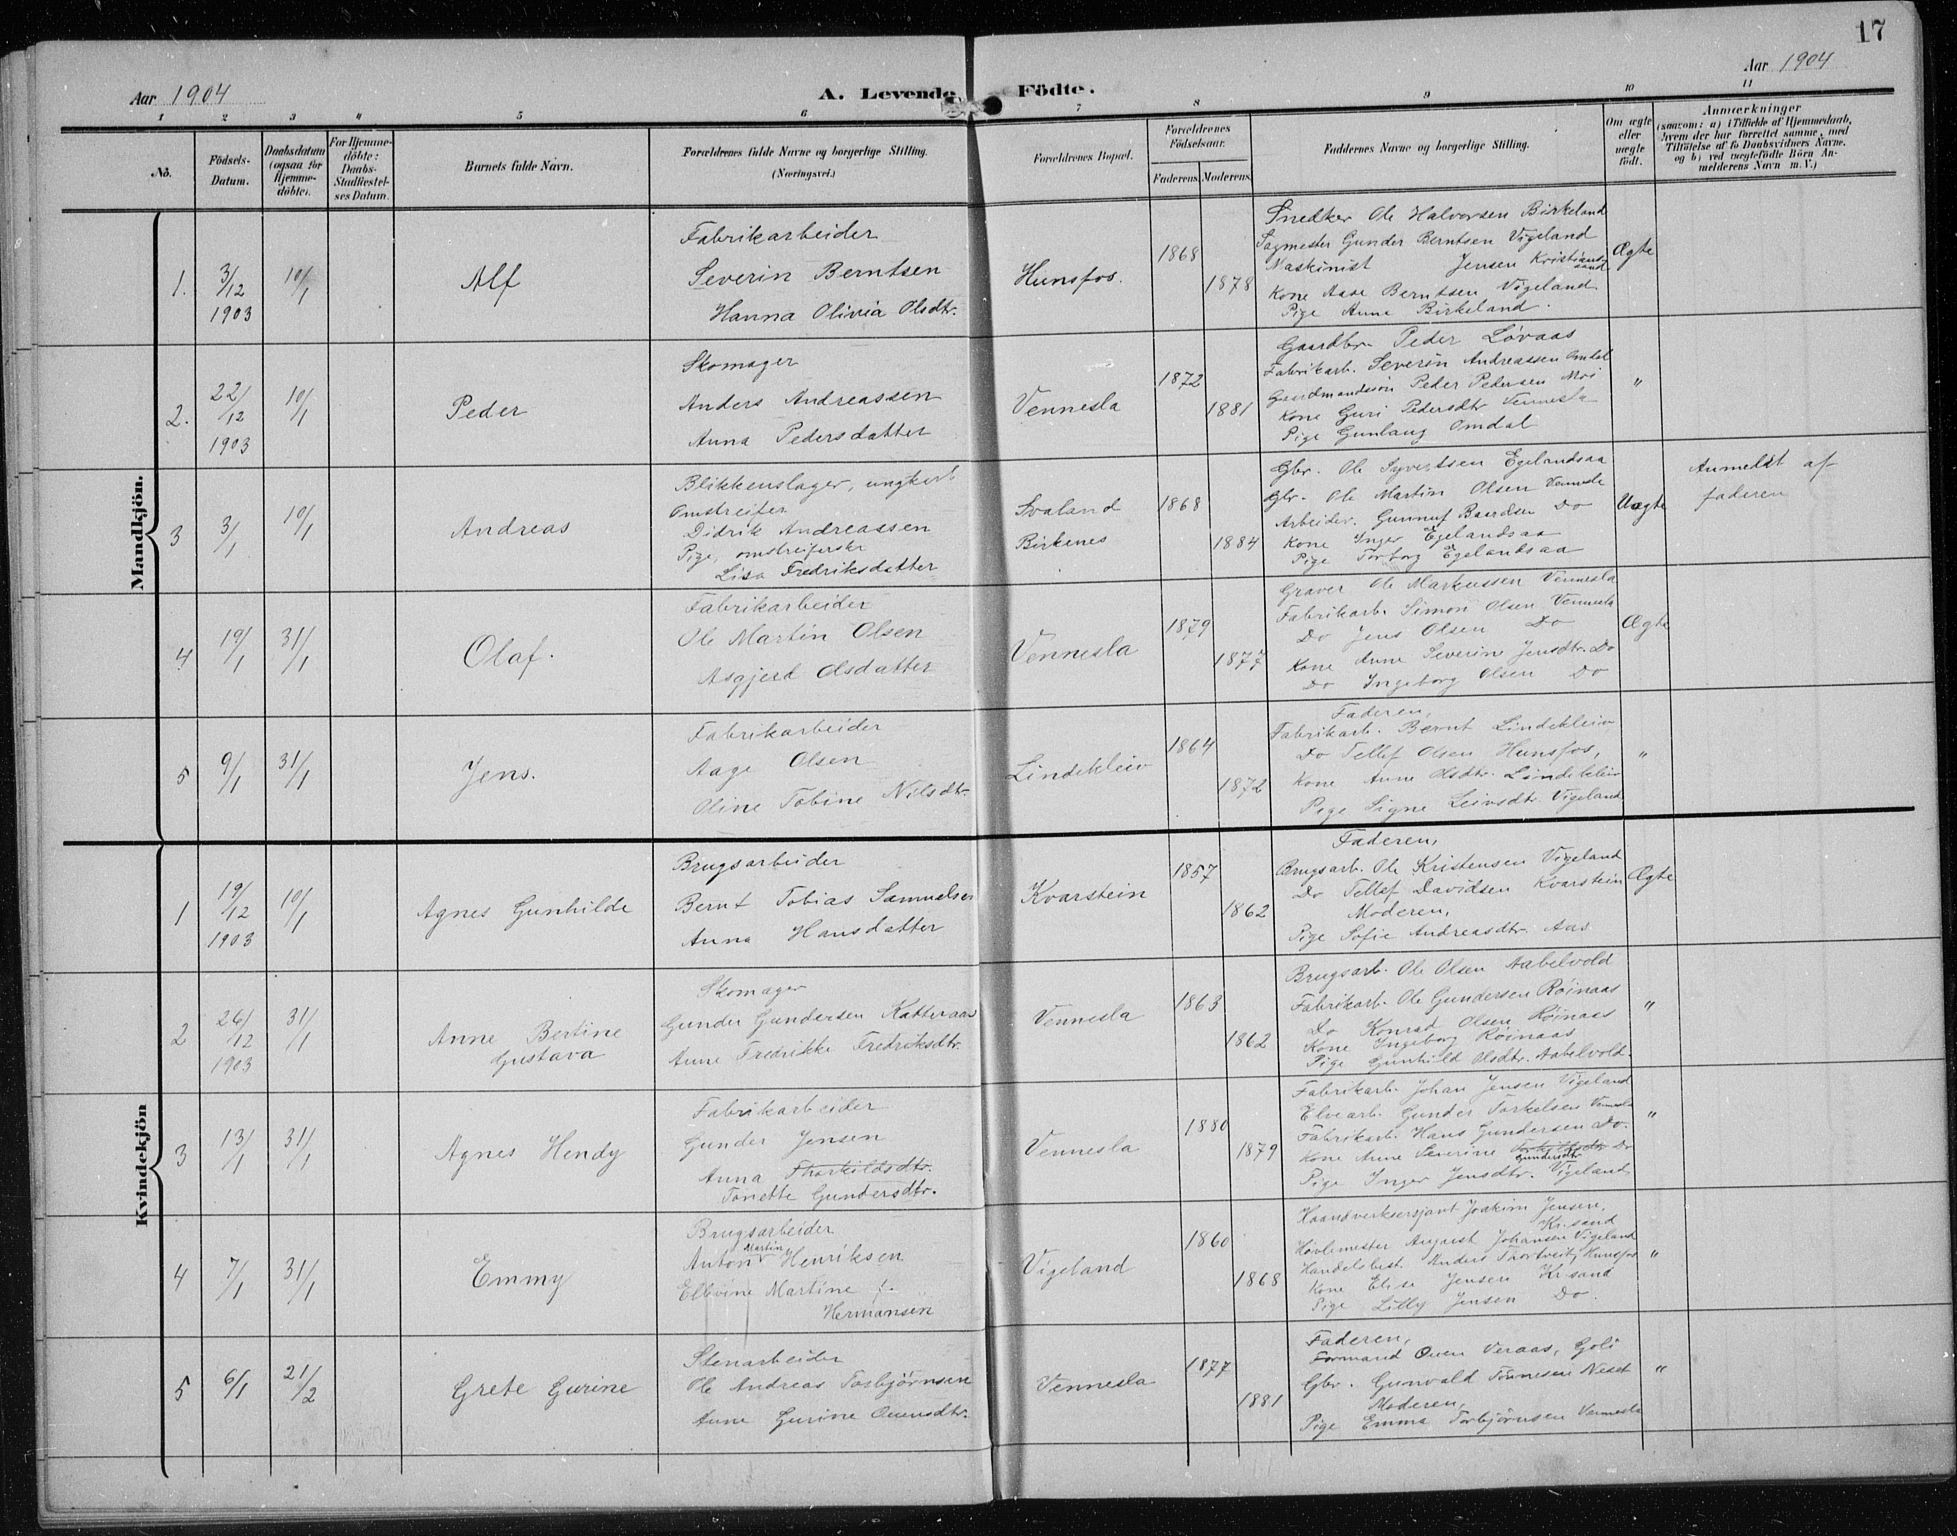 17
Aar 1904
A. Levende Födte.
Aar 1904
1 2 3 4 5 6 7 8 9 10 11
No.
Födsels-
Datum.
Daabsdatum
(ogsaa for
Hjemme-
döbte).
For Hjemme-
döbte:
Daabs-
Stadfæstel-
ses Datum.
Barnets fulde Navn.
Forældrenes fulde Navne og borgerlige Stilling.
(Næringsvei.)
Forældrenes Bopæl.
Forældrenes
Födselsaar.
Faderens. Moderens.
Faddernes Navne og borgerlige Stilling.
Om ægte
eller
uægte
født.
Anmærkninger
(saasom: a) i Tilfælde af Hjemmedaab,
hvem der har forrettet samme, med
Tilföielse af to Daabsvidners Navne,
og b) ved uægtefödte Börn An-
melderens Navn m. V.)
Mandkjön.
1. 3/12 1903
10/1
Alf
Fabrikarbeider
Severin Berntsen
Hanna Olivia Olsdtr.
Hunsfos.
1868
1878
Snedker Ole Halvorsen Birkeland
Sagmester Gunder Berntsen Vigeland
Maskinist Jensen Kristianssand
Kone Aase Berntsen Vigeland
Pige Anne Birkeland.
Ægte
2. 22/12 1903
10/1
Peder
Skomager
Anders Andreassen
Anna Pedersdatter
Vennesla
1872
1881
Gaardbr. Peder Løvaas
Fabrikarb. Severin Andreassen Omdal
Gaardmandssön Peder Pedersen Moi
Kone Guri Pedersdtr Vennesla
Pige Gunlaug Omdal
"
3 3/1
10/1
Andreas
Blikkenslager, ungkarl
Omstreifer
Didrik Andreassen
Pige, omstreiferske
Lisa Fredriksdatter
Svaland
Birkenes
1868
1884
Gbr. Ole Syvertsen Egelandsaa
Gbr. Ole Martin Olsen Vennesla
Arbeider. Gunnuf Baardsen Do
Kone Inger Egelandsaa
Pige Torborg Egelandsaa
Uægte
Anmeldt af
faderen
4 19/1
31/1
Olaf.
Fabrikarbeider
Ole Martin Olsen
Asgjerd Olsdatter
Vennesla
1879
1877
Graver Ole Markussen Vennesla
Fabrikarb. Simon Olsen Vennesla
Do Jens Olsen Do
Kone Anne Severine Jensdtr. Do
Do Ingeborg Olsen Do
Ægte
5 9/1
31/1
Jens.
Fabrikarbeider
Aage Olsen
Oline Tobine Nilsdtr.
Lindekleiv
1864
1872
Faderen,
Fabrikarb. Bernt Lindekleiv
Do Tellef Olsen Hunsfos,
Kone Anne Olsdtr. Lindekleiv
Pige Signe Leivsdtr. Vigeland
"
Kvindekjön
1 19/12 1903
10/1
Agnes Gunhilde
Brugsarbeider
Bernt Tobias Samuelsen
Anna Hansdatter
Kvarstein
1857
1862
Faderen,
Brugsarb. Ole Kristensen Vigeland
Do Tellef Davidsen Kvarstein
Moderen,
Pige Sofie Andreasdtr. Aas
Ægte
2 26/12 1903
31/1
Anne Bertine
Gustava
Skomager
Gunder Gundersen Katteraas
Anne Fredrikke Fredriksdtr.
Vennesla
1863
1862
Brugsarb. Ole Olsen Aabelvold
Fabrikarb. Ole Gundersen Röinaas
Do Konrad Olsen Röinaas
Kone Ingeborg Röinaas
Pige Gunhild Olsdtr. Aabelvold.
"
3 13/1
31/1
Agnes Hendy
Fabrikarbeider
Gunder Jensen
Anna Thorkildsdtr.
Tonette Gundersdtr.
Vennesla
1880
1879
Fabrikarb. Johan Jensen Vigeland
Elvearb. Gunder Torkelsen Vennesla
Fabrikarb. Hans Gundersen Do.
Kone Anne Severine Gundersdtr Do
Pige Inger Jensdtr. Vigeland
"
4 7/1
31/1
Emmy
Brugsarbeider
Anton Martin Henriksen
Ellevine Martine f.
Hermansen
Vigeland
1860
1868
Haandverksersjant Joakim Jensen,
Kr.sand
Høvlemester August Johansen Vigeland
Handelsbest. Anders Thortveit, Hunsfos
Kone Elise Jensen Kr.sand
Pige Lilly Jensen Do.
"
5 6/1
21/2
Grete Gurine
Stenarbeider
Ole Andreas Torbjörnsen
Anne Gurine Ouensdtr.
Vennesla
1877
1881
Faderen,
Formand Ouen Veraas, Goli
Gbr. Gunvald Tönnesen Neset
Moderen,
Pige Emma Torbjörnsen Vennesla
"